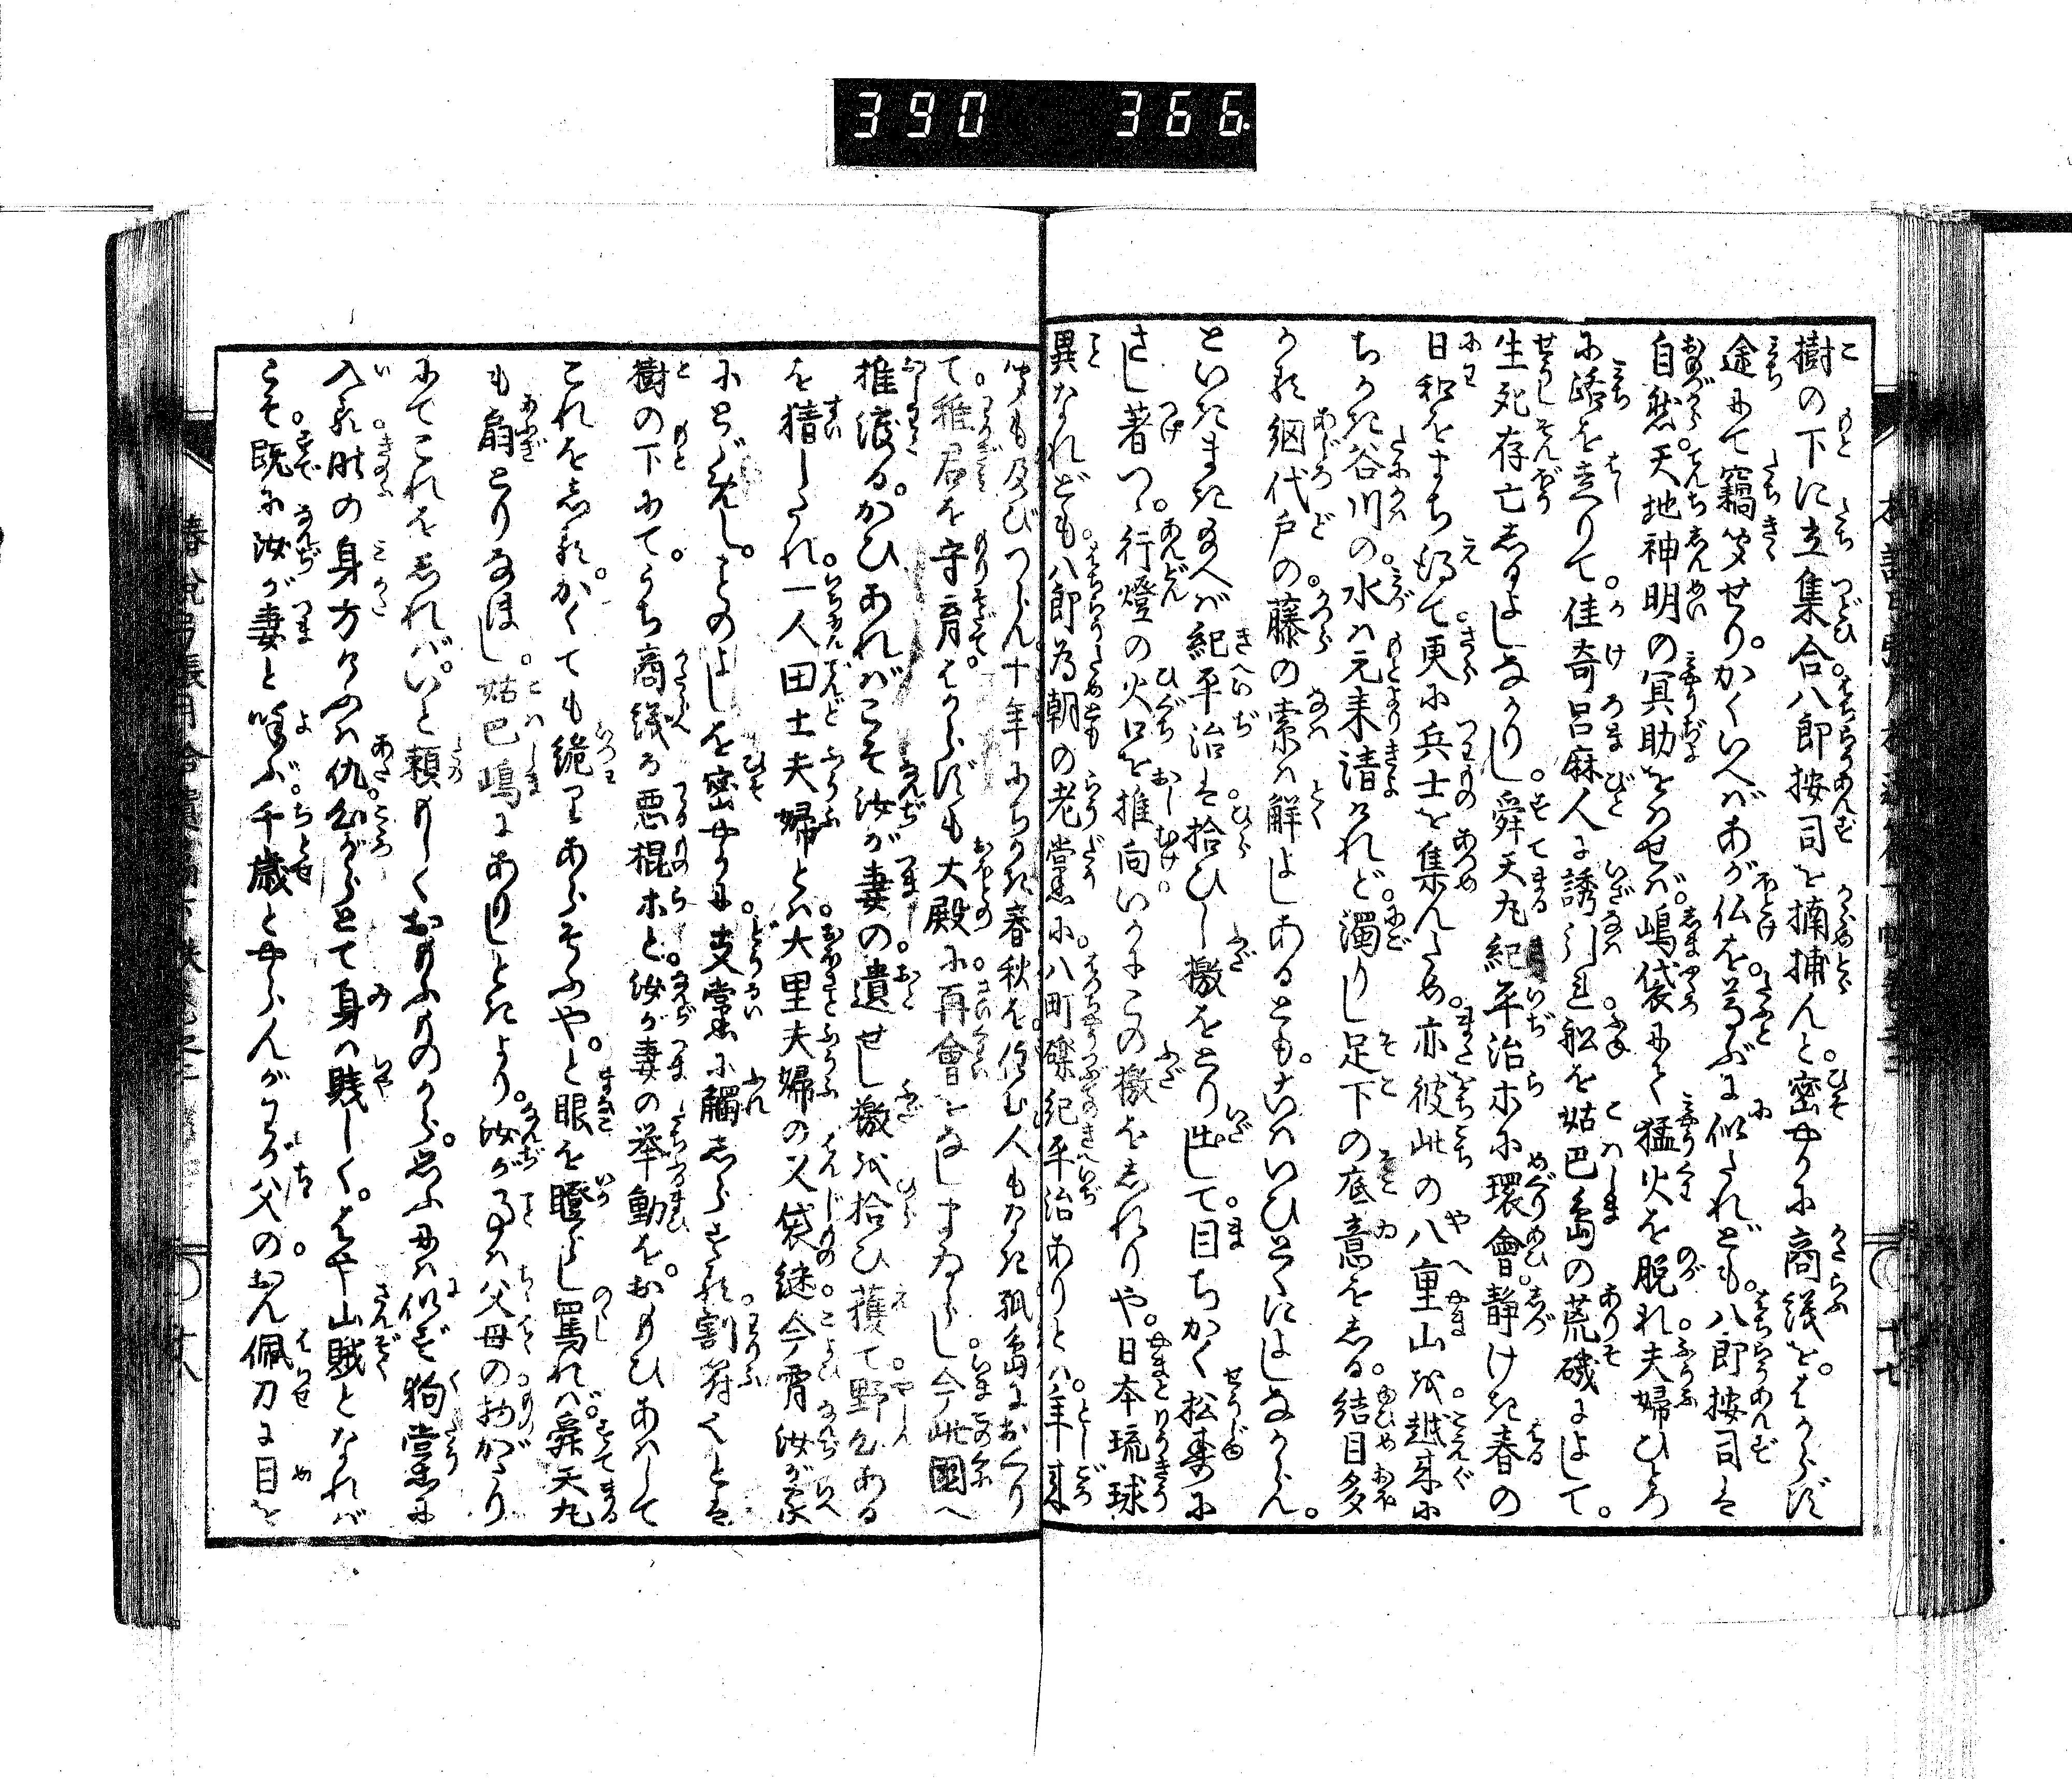 390 366
樹の下に立集合八郎按司を搦捕んと密やかに商議を。はからず
途にて竊聞せり。かくいへばあが仏を尊ぶに似たれども。八郎按司は
自然天地神明の冥助をはせば。嶋袋にて猛火を脱れ夫婦ひとつ
に路を走りて。佳奇呂麻人に誘引れ船を姑巴嶋の荒磯によして。
生死存亡しるよしなかりし。舜天丸紀平治ホに環會静けき春の
日和をまち得て更に兵士を集んため。亦彼此の八重山を越来に
ちかき谷川の。水は元来清けれど。濁りし足下の底意をしる。結目多
かる網代戸の。藤の索は解よしあるとも。こはいひとくによしなからん。
といきまきたへば紀平治は。拾ひし檄をとり出して。目ちかく松寿に
さし著つ。行燈の火口を推向いかにこの檄をしれりや。日本琉球
異なれども。八郎為朝の老黨に。八町礫紀平治ありとは。年来
聞も及びつらん。十年にちかき春秋を住む人もなき孤島におくり
て。稚君を守育。はからずも大殿に再會をなしまゐらし。今此國へ
推渡る。かひあればこそ汝が妻の。遺せし檄を拾ひ獲て野心ある
を猜したれ。一人田土夫婦とは。大里夫婦の父袋謎。今霄汝が家
にとゞめし。このよしを密やかに。支黨に觸しらする。割符ぞとは
樹の下にて。うち商議る悪棍ホと。汝が妻の挙動を。おもひあはして
これをしる。かくても絶てあらそふや。と眼を瞪らし罵れば。舜天丸
も扇とりなほし。姑巴嶋にありしときより。汝が事は父母のものがたり
にてこれをしれば。いと頼もしくおもふものから。思ふには似ず狗黨に
入る昨の身方けふは仇心がらとて身は賤しく。はや山賊となれば
こそ。既に汝が妻と呼ぶ。千歳とやらんがわが父のおん佩刀に目を
十七
十八